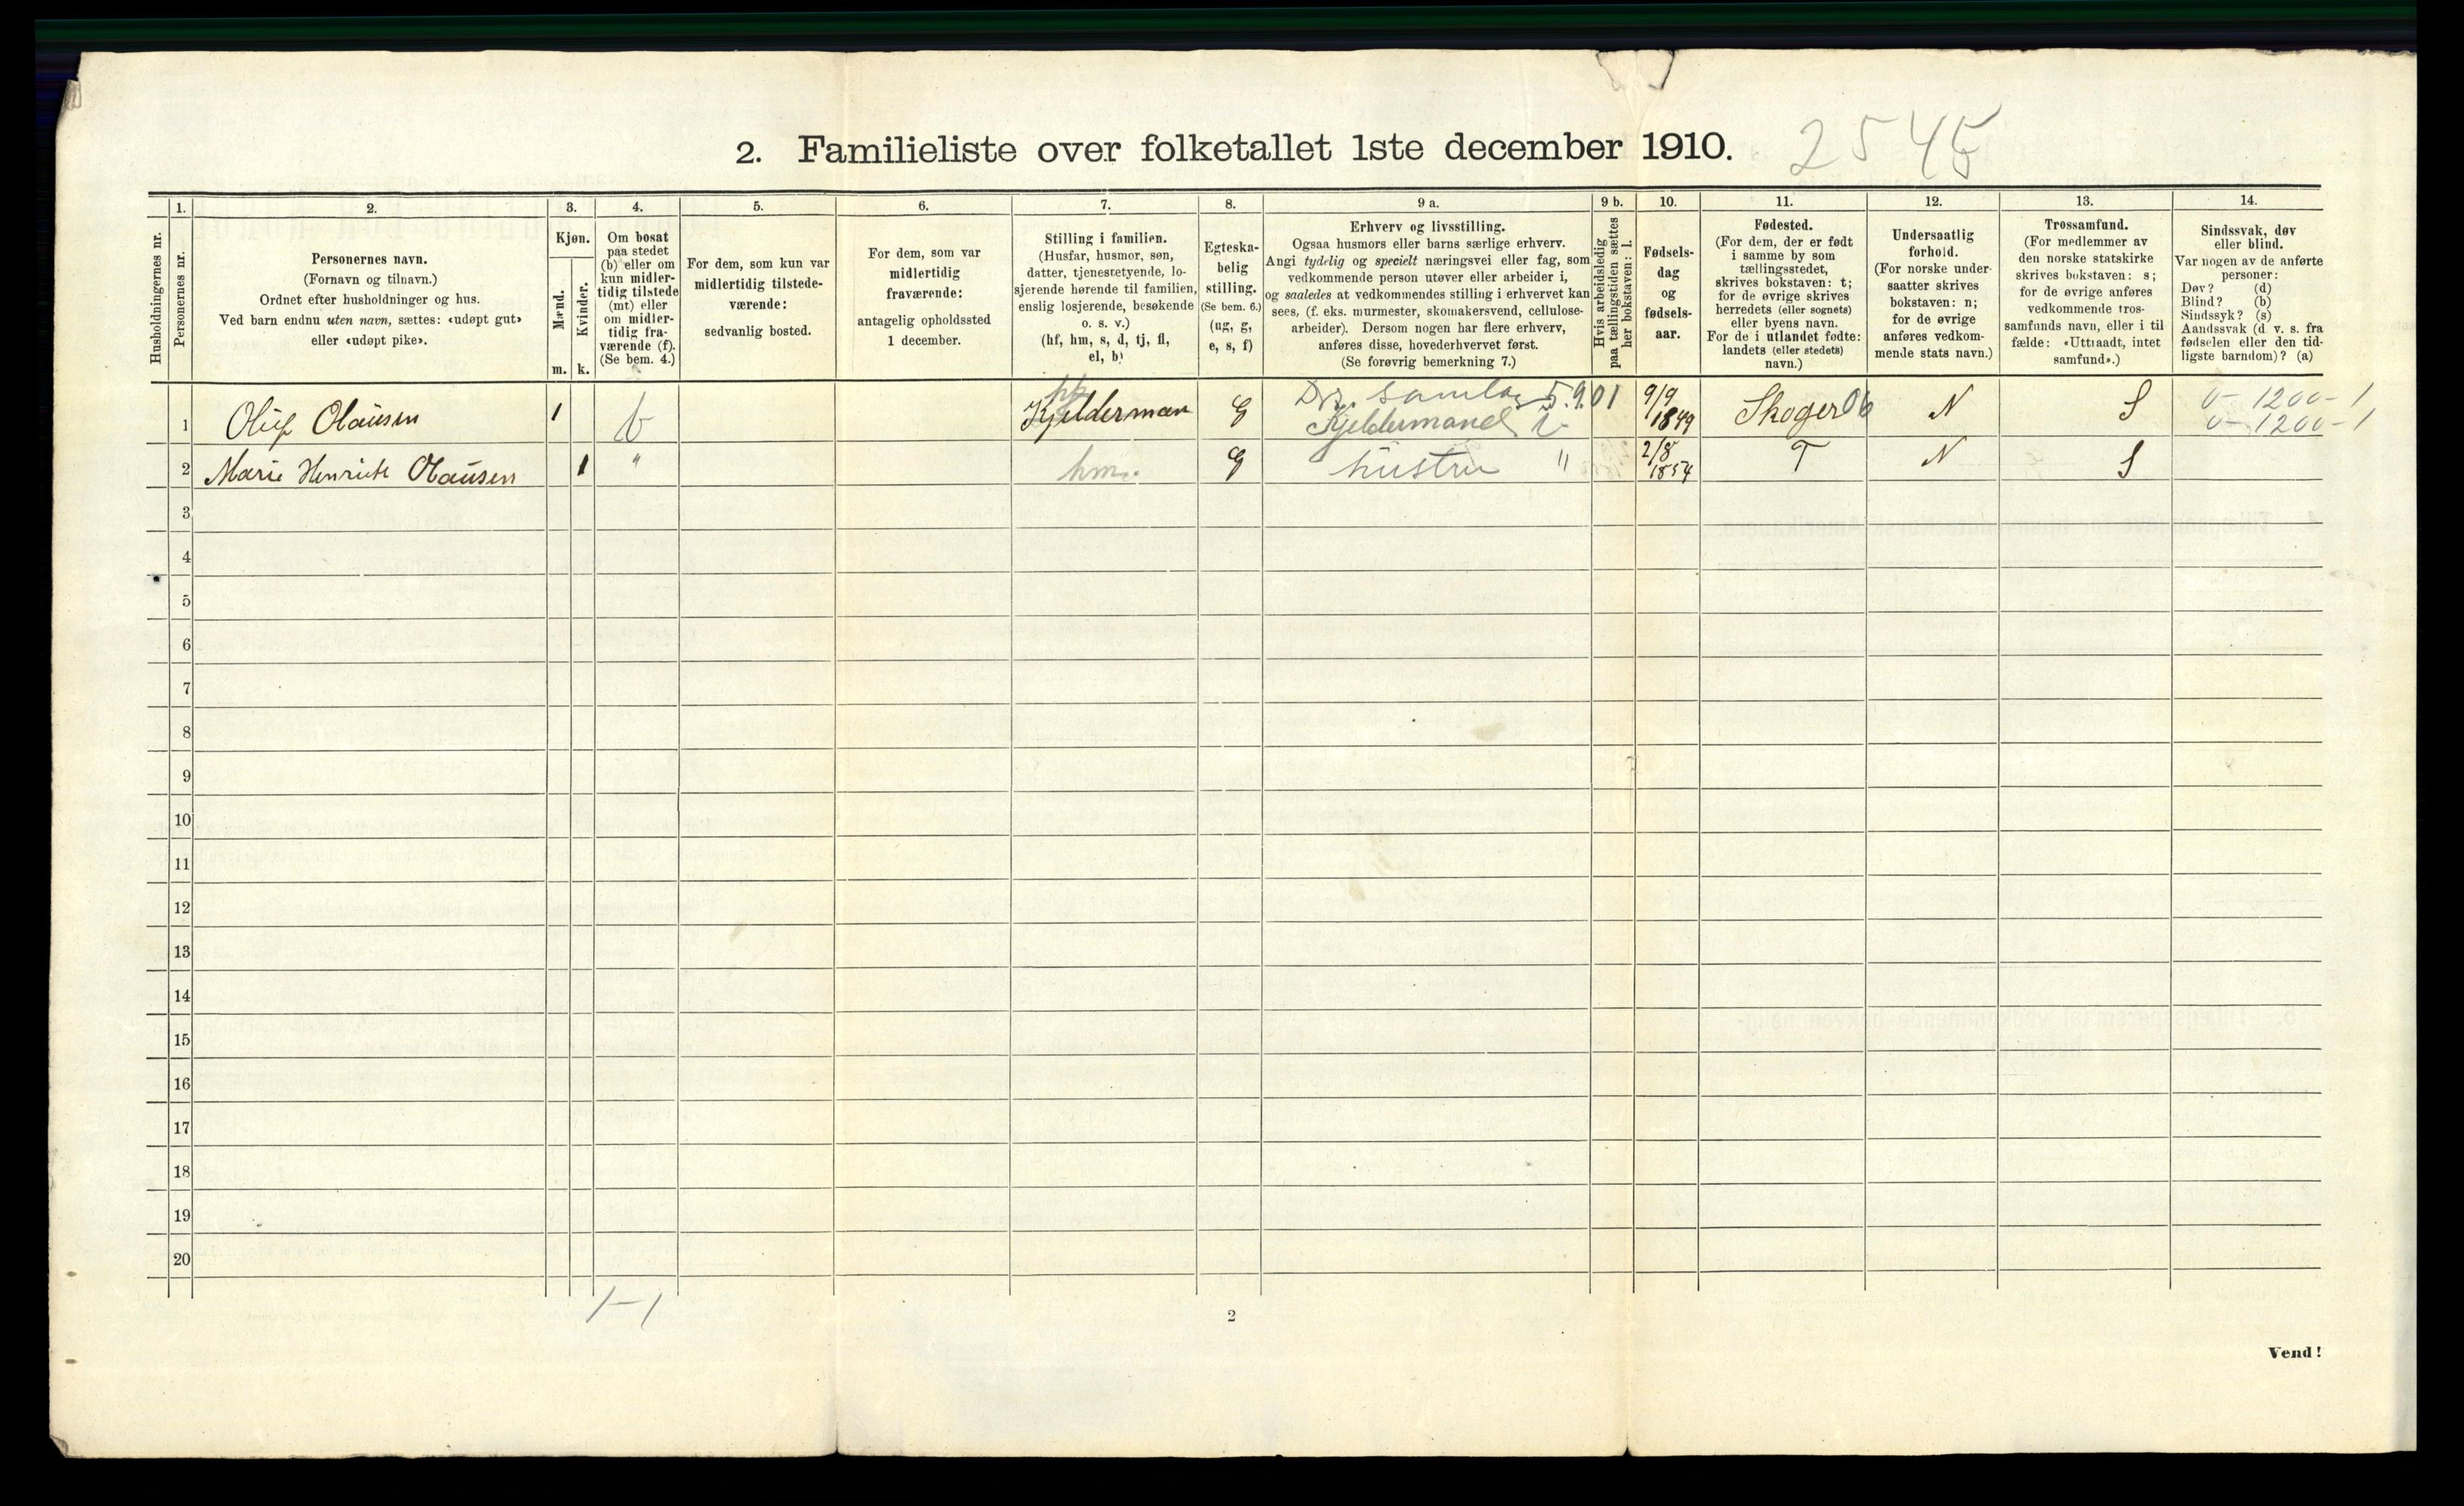 2. Familieliste over folketallet 1ste december 1910.
2545
Husholdningernes nr.
1.
Personernes nr.
2.
Personernes navn.
(Fornavn og tilnavn.)
Ordnet efter husholdninger og hus.
Ved barn endnu uten navn, sættes: «udøpt gut»
eller «udøpt pike».
3.
Kjøn.
Mænd.
Kvinder.
m. k.
4.
Om bosat
paa stedet
(b) eller om
kun midler-
tidig tilstede
(mt) eller
om midler-
tidig fra-
værende (f).
(Se bem. 4.)
5.
For dem, som kun var
midlertidig tilstede-
værende:
sedvanlig bosted.
6.
For dem, som var
midlertidig
fraværende:
antagelig opholdssted
1 december.
7.
Stilling i familien.
(Husfar, husmor, søn,
datter, tjenestetyende, lo-
sjerende hørende til familien,
enslig losjerende, besøkende
o. s. v.)
(hf, hm, s, d, tj, fl,
el, b)
8.
Egteska-
belig
stilling.
(Se bem. 6.)
(ug, g,
e, s, f)
9 a.
Erhverv og livsstilling.
Ogsaa husmors eller barns særlige erhverv.
Angi tydelig og specielt næringsvei eller fag, som
vedkommende person utøver eller arbeider i,
og saaledes at vedkommendes stilling i erhvervet kan
sees, (f. eks. murmester, skomakersvend, cellulose-
arbeider). Dersom nogen har flere erhverv,
anføres disse, hovederhvervet først.
(Se forøvrig bemerkning 7.)
9 b.
Hvis arbeidsledig
paa tællingstiden sættes
her bokstaven: l.
10.
Fødsels-
dag
og
fødsels-
aar.
11.
Fødested.
(For dem, der er født
i samme by som
tællingsstedet,
skrives bokstaven: t;
for de øvrige skrives
herredets (eller sognets)
eller byens navn.
For de i utlandet fødte:
landets (eller stedets)
navn.)
12.
Undersaatlig
forhold.
(For norske under-
saatter skrives
bokstaven: n;
for de øvrige
anføres vedkom-
mende stats navn.)
13.
Trossamfund.
(For medlemmer av
den norske statskirke
skrives bokstaven: s;
for de øvrige anføres
vedkommende tros-
samfunds navn, eller i til
fælde: «Uttraadt, intet
samfund».)
14.
Sindssvak, døv
eller blind.
Var nogen av de anførte
personer:
Døv? (d)
Blind? (b)
Sindssyk? (s)
Aandssvak (d. v. s. fra
fødselen eller den tid-
ligste barndom)? (a)
1 Oluf Olausen 1 b hf Kjelderman G Dr. samlag 5.9.01 Kjeldermand 9/9 1849 Skoger 06 N S 0-1200-1
0-1200-1
2 Marie Henriette Olausen 1 " hm. G hustru " 2/8 1854 T N S
3
4
5
6
7
8
9
10
11
12
13
14
15
16
17
18
19
20
1-1
2
Vend!